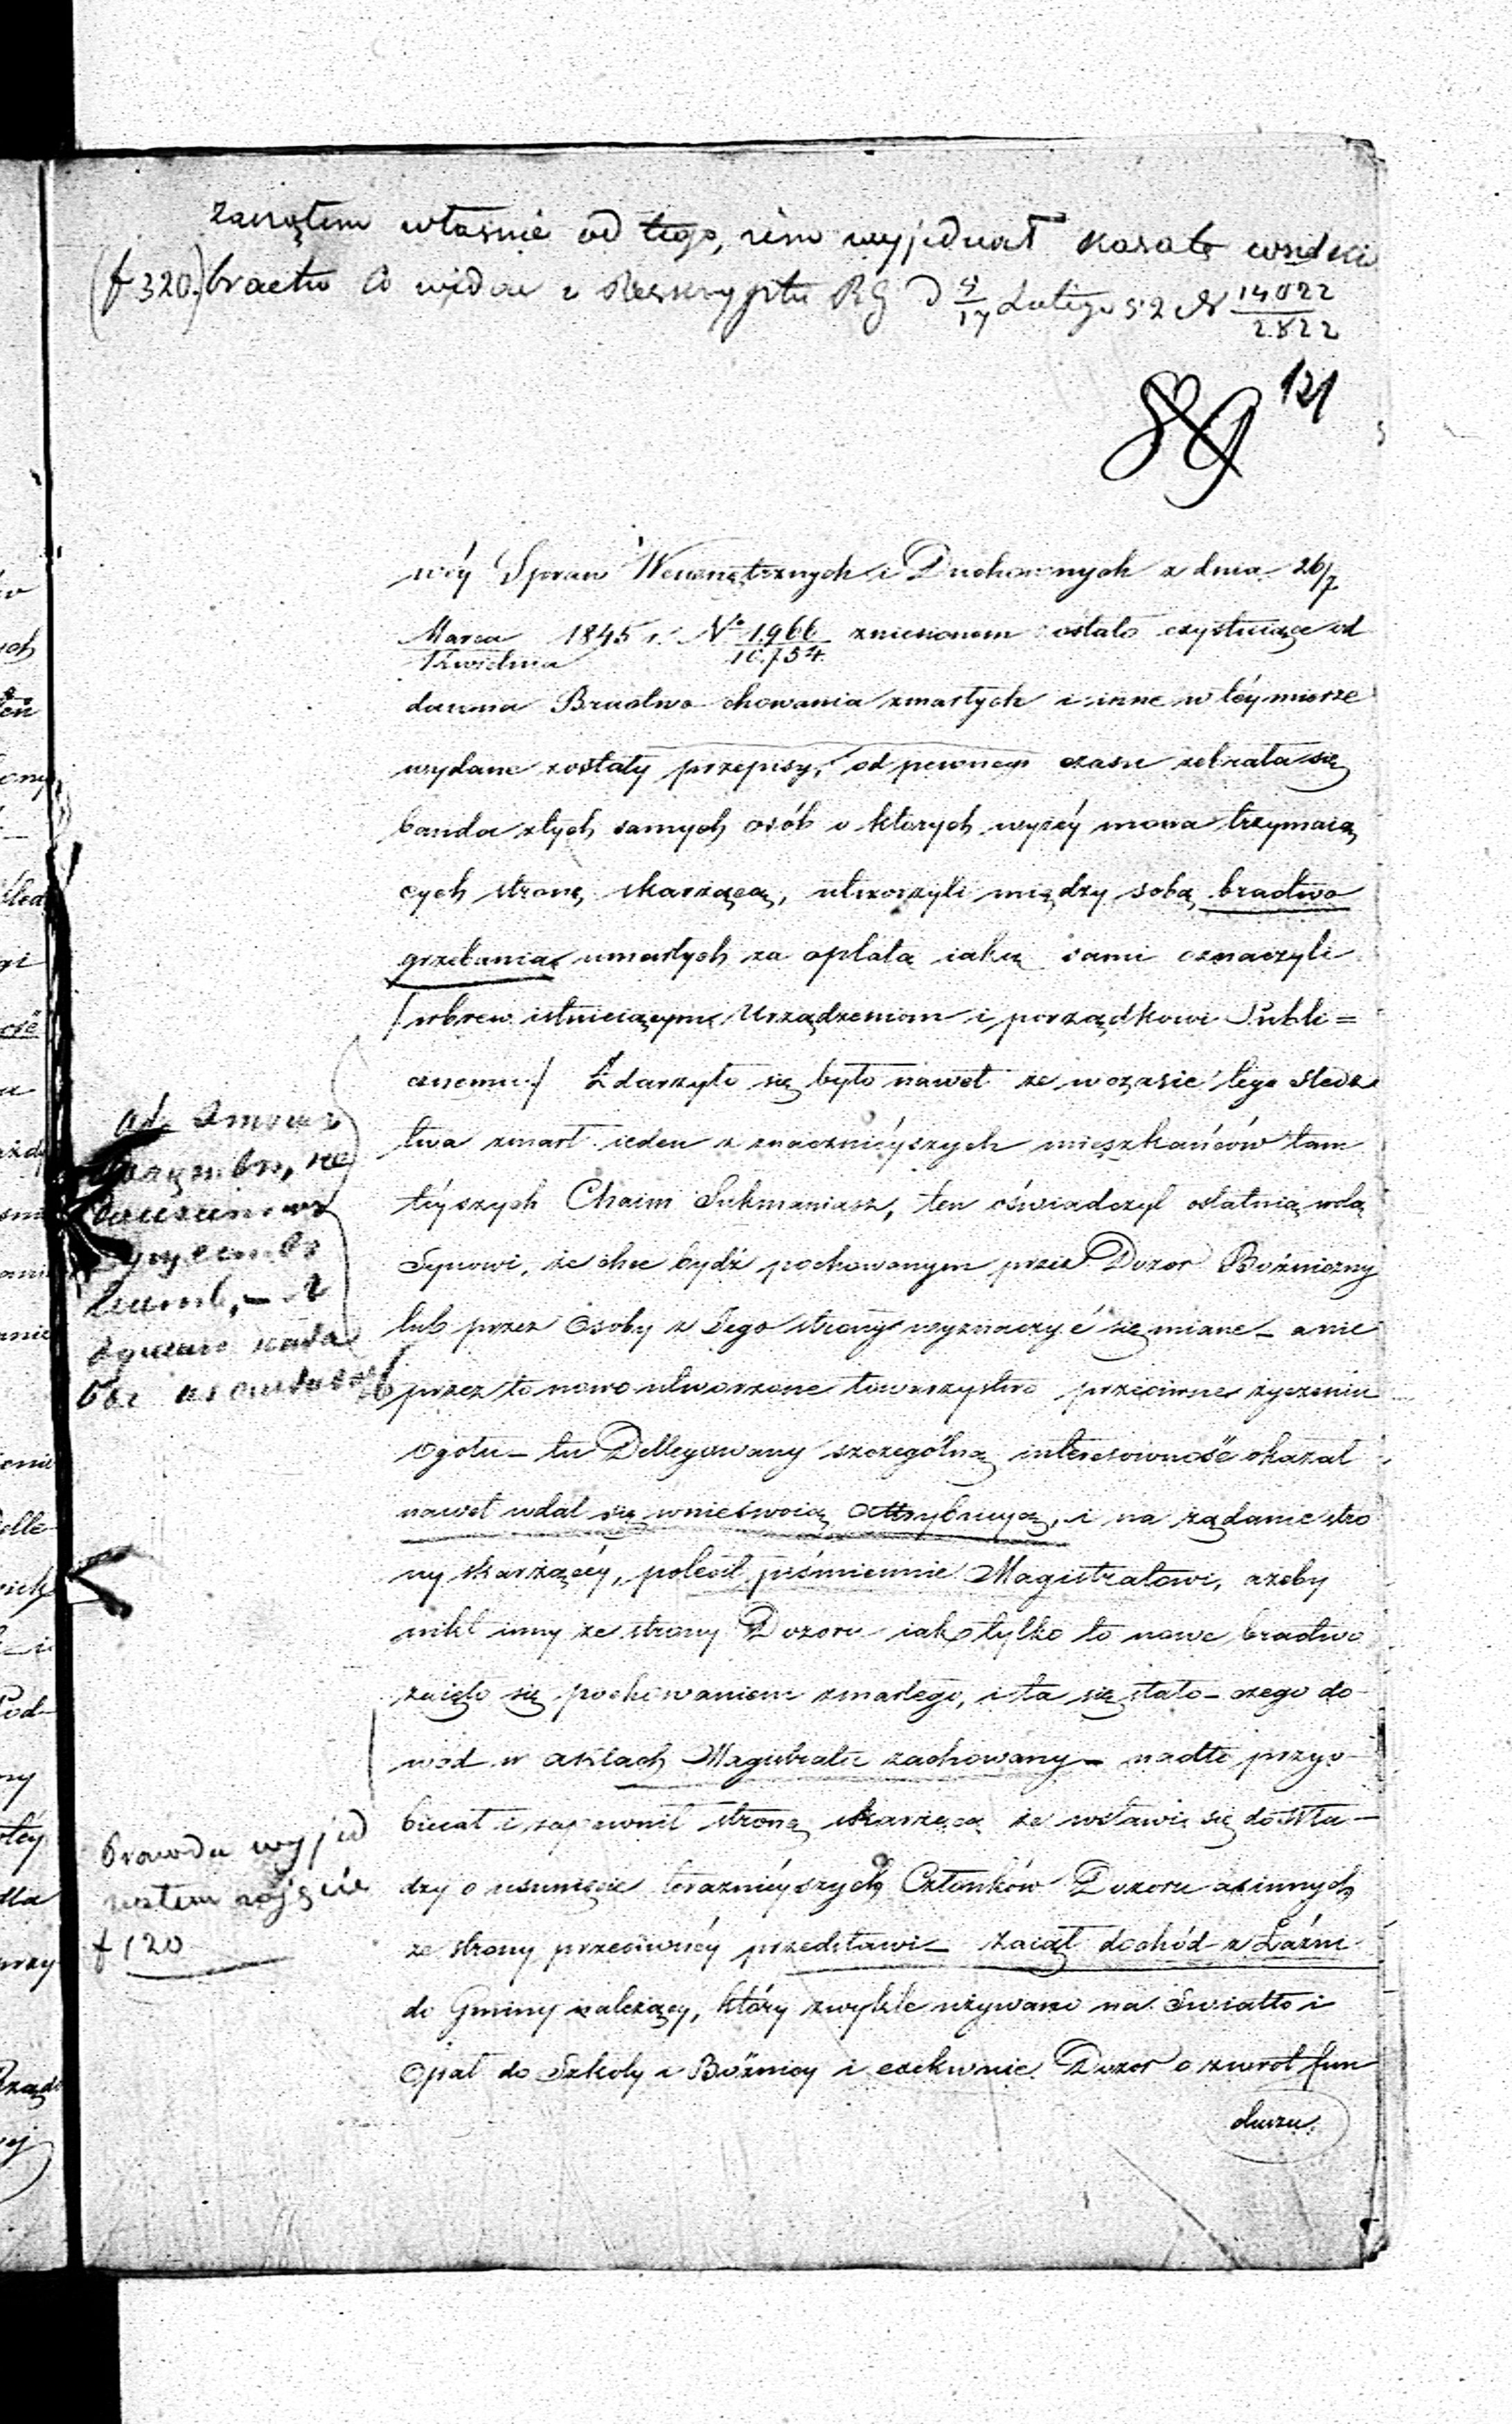 zacząłem właśnie od tego, żem wyjednał kasatę
(f 320.) bractw Co widać z Reskryptu RG D 9/17 Lutego 52 N 14022/2822
121
wéy Spraw Wewnętrznych i Duchownych z dnia 26/7
Marca/Kwietnia 1845 r. No 1966/10.754. zniesionem ostało exystuiące od
dawna Bractwo chowania zmarłych i inne w téy mierze
wydane zostały przepisy, od pewnego czasu zebrała się
banda złych samych osób o których wyżéy mowa trzymaią
cych stronę skarżącą, utworzyli między sobą bractwo
grzebania umarłych za opłatą iaką sami oznaczyli
/wbrew istnieiącym Urządzeniom i porządkowi Publi=
cznemu/ Zdarzyło się było nawet że w czasie tego Sledz
twa zmarł ieden z znacznieyszych mieszkańców tam
téyszych Chaim Sukmaniarz, ten oświadczył ostatnią wolą
Synowi, że chce bydź pochowanym przez Dozor Bożniczny
lub przez Osoby z Jego strony wyznaczyć się miane – a nie
przez to nowo utworzone towarzystwo przeciwne życzeniu
Ogółu – tu Dellegowany szczególną interesowność okazał
nawet wdał się w nieswoią attrybucyą, i na żądanie stro
ny skarżącéy, polecił piśmiennie Magistratowi, ażeby
nikt inny ze strony Dozoru iak tylko to nowe bractwo
zaięło się pochowaniem zmarłego, i ta się stało – czego do
wód w aktach Magistratu zachowany – nadto przyo-
biecał i zapewnił stronę skarżącą że wstawi się do Wła-
dzy o usunięcie teraznieyszych Członków Dozoru a innych
ze strony przeciwnéy przedstawi – zaiął dochód z Łaźni
do Gminy należący, który zwykle używano na Swiatło i
Opał do Szkoły i Bożnicy i exekwuie Dozor o zwrot fun
duszu.
Prawda wyjed
nałem
f 120